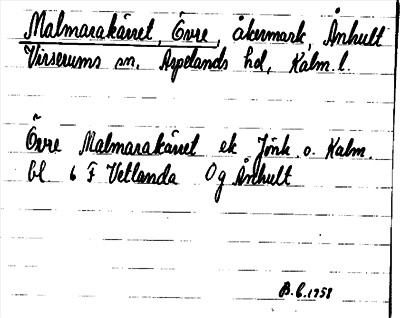 Malmarakärret, Övre, åkermark, Ånhult
Virserums sn. Aspelands hd, Kalm. l.
Övre Malmarakärret ek Jönk o. Kalm.
bl 6 F Vetlanda Og Ånhult
B.C. 1958